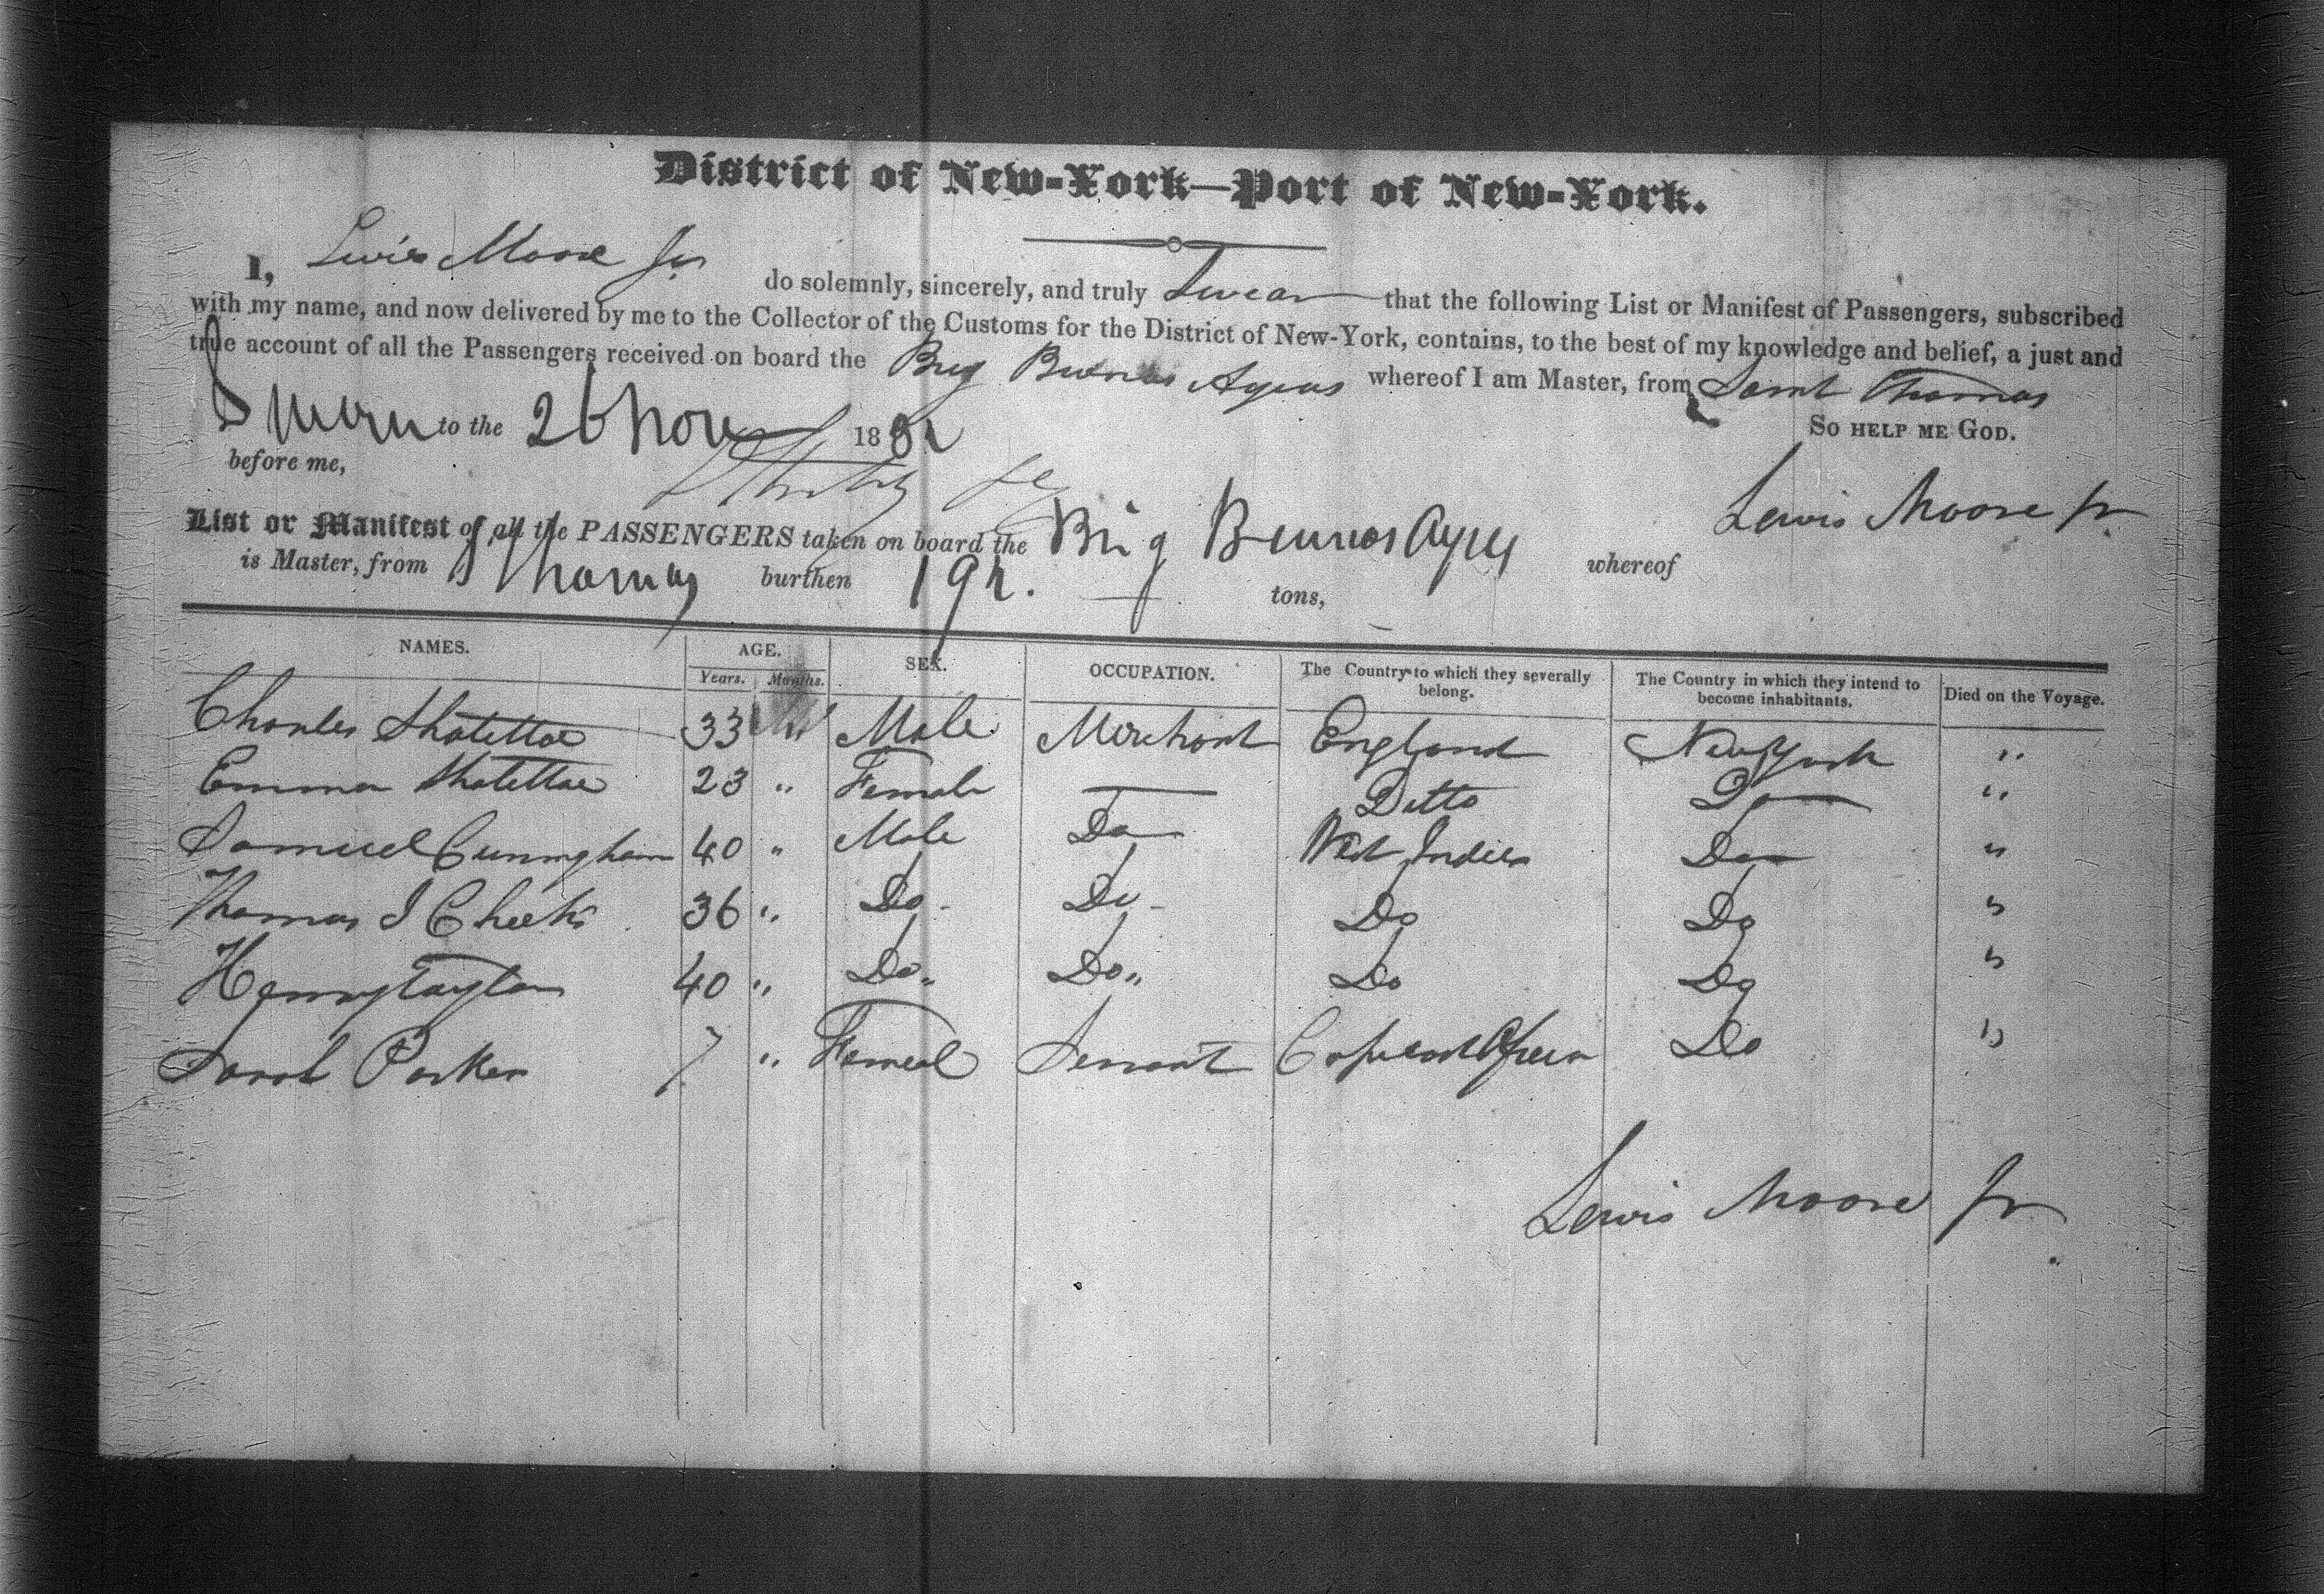 District of New-York—Port of New-York.
I, Lewis Moore Jr do solemnly, sincerely, and truly Swear that the following List or Manifest of Passengers, subscribed
with my name, and now delivered by me to the Collector of the Customs for the District of New-York, contains, to the best of my knowledge and belief, a just and
true account of all the Passengers received on board the Brig Buenos Ayres whereof I am Master, from Saint Thomas
Sworn to the 26 Nov 18 So help me God.
before me,
Lewis Moore Jr
List or Manifest of all the PASSENGERS taken on board the Brig Buenos Ayres whereof
is Master, from St Thomas burthen 192. tons,
NAMES. AGE. SEX. OCCUPATION. The Country to which they severally belong. The Country in which they intend to become inhabitants. Died on the Voyage.
Years. Months.
Charles 33 Male Merchant England New York "
Emma 23 " Female — Ditto Do "
Samuel Cuningham 40 " Male Do West Indies Do "
Thomas J Cheeks 36 " Do Do Do Do "
Henry Taylor 40 " Do Do Do Do "
Sarah Parker 7 " Femeal Servant Africa Do "
Lewis Moore Jr